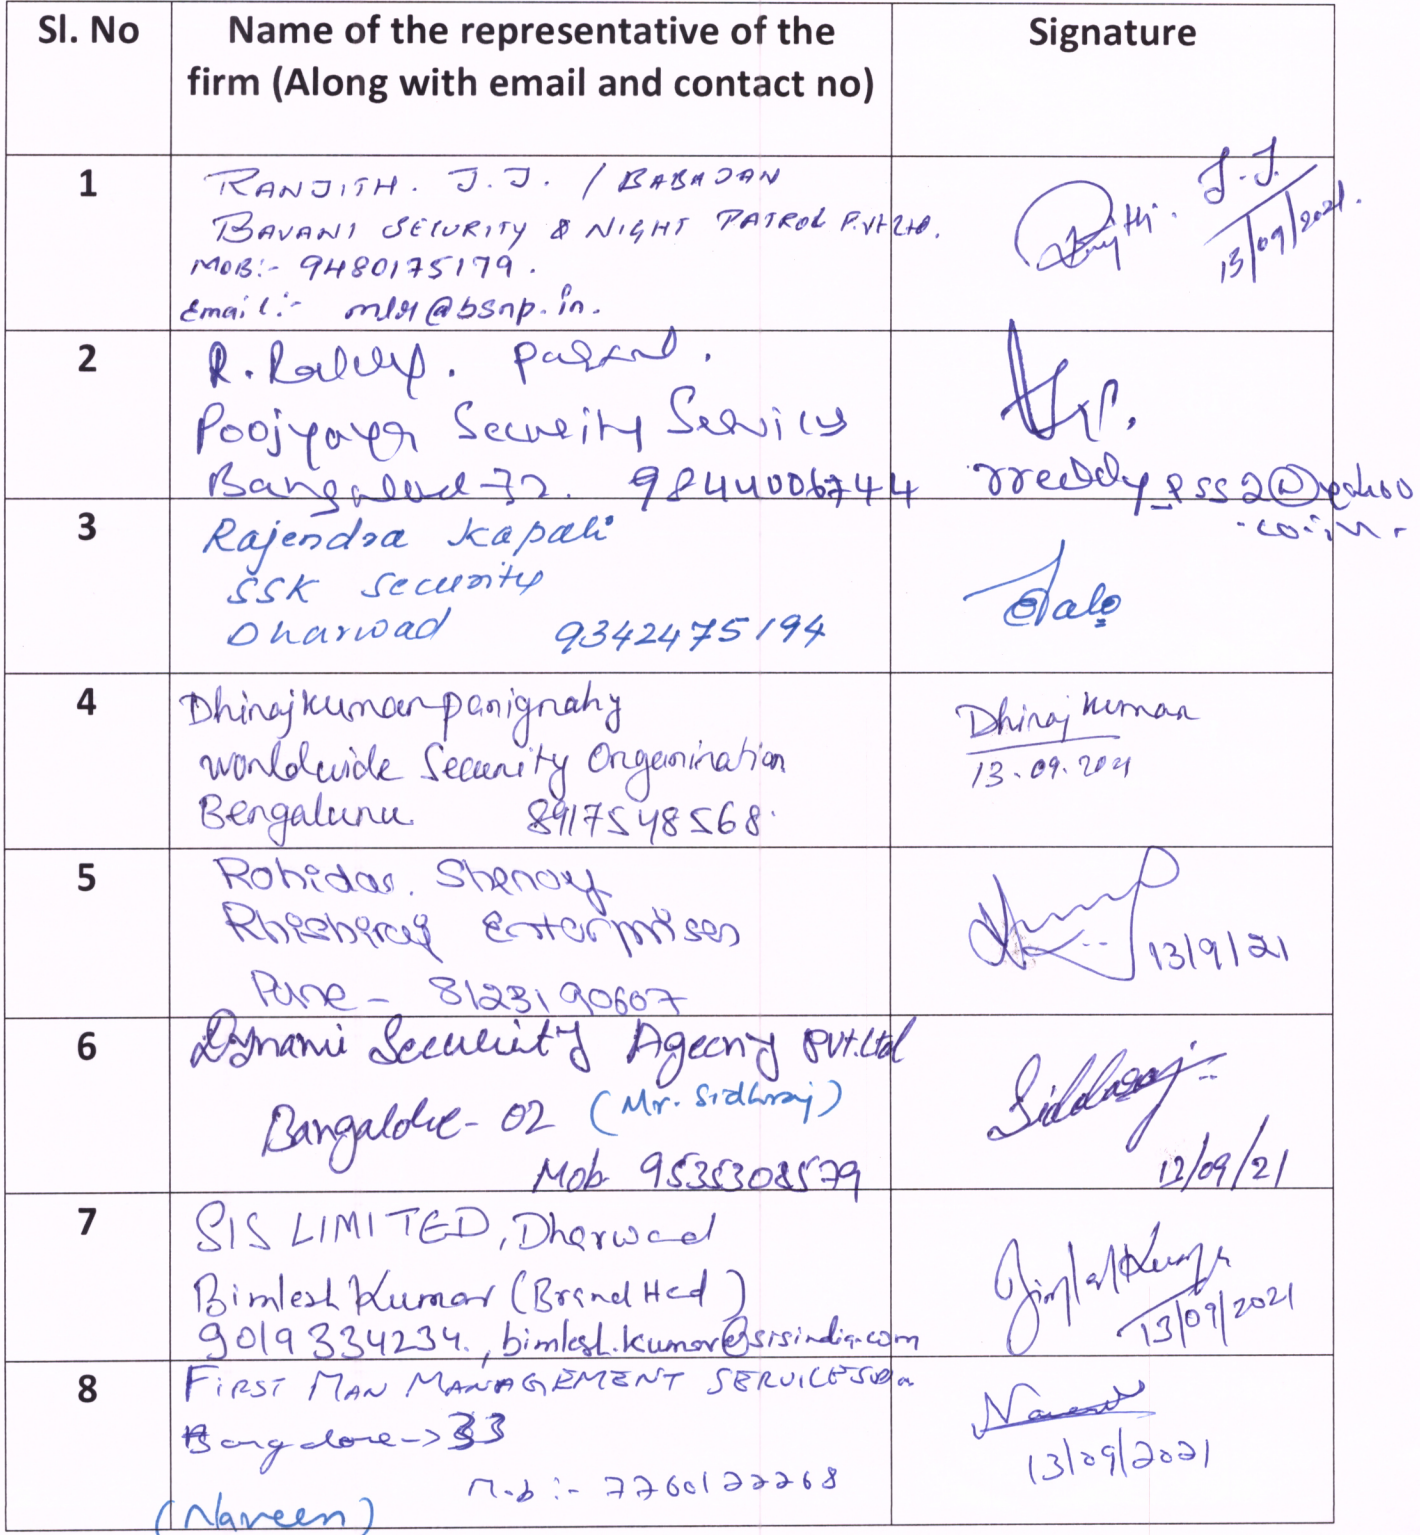 Sl. No
Name of the representative of the
firm (Along with email and contact no)
Signature
1
RANJITH. J.J. / BABAJAN
BAVANI SECURITY & NIGHT PATROL P.vt Ltd.
MOB:- 9480175179.
Email:- mlr@bsnp.in.
J.J.
13/09/2021.
2
R.
Security Services
9844006744
rreddy_pss2@yahoo
.co.in.
3
Rajendra Kapali
SSK Security
Dharwad 9342475194
4
Dhirajkumar panigrahy
worldwide Security Organination
Bengaluru 8917548568.
Dhiraj Kumar
13.09.2021
5
Rohidas. Shenoy
Enterprises
Pune - 8123190607
13/9/21
6
Dynamic Security Agecny PVt.Ltd
Bangalore - 02 (Mr. Sidhraj)
Mob 9535308579
Siddaraj
12/09/21
7
SIS LIMITED, Dharwad
Bimlesh Kumar (Brand Hed)
9019334234., bimlesh.kumar@sisindia.com
13/09/2021
8
FIRST MAN MANAGEMENT SERVICES
Bangalore -> 33
Mob :- 7760122268
(Naveen)
13/09/2021